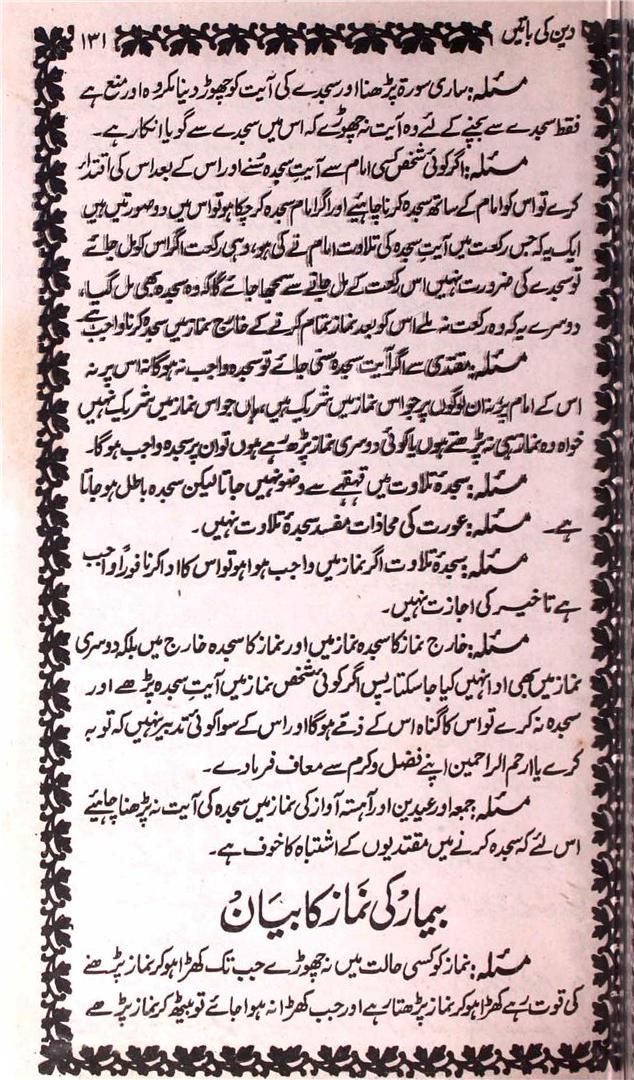 دین کی باتیں
۱۳۱
مسئلہ: ساری سورۃ پڑھنا اور سجدے کی آیت کو چھوڑ دینا مکروہ اور منع ہے
فقط سجدے سے بچنے کے لئے وہ آیت نہ چھوڑے کہ اس میں سجدے سے گویا انکار ہے۔
مسئلہ: اگر کوئی شخص کسی امام سے آیتِ سجدہ سُنے اور اس کے بعد اس کی اقتدار
کرے تو اس کو امام کے ساتھ سجدہ کرنا چاہیئے اور اگر امام سجدہ کر چکا ہو تو اس میں دو صورتیں ہیں
ایک یہ کہ جس رکعت میں آیتِ سجدہ کی تلاوت امام نے کی ہو، وہی رکعت اگر اس کو مل جائے
تو سجدے کی ضرورت نہیں اس رکعت کے مل جانے سے سمجھا جائے گا کہ وہ سجدہ بھی مل گیا،
دوسرے یہ کہ وہ رکعت نہ ملے اس کو بعد نماز تمام کرنے کے خارج نماز میں سجدہ کرنا واجب ہے
مسئلہ: مقتدی سے اگر آیت سجدہ سُنی جائے تو سجدہ واجب نہ ہوگا نہ اس پر نہ
اس کے امام پر نہ ان لوگوں پر جو اس نماز میں شریک ہیں، ہاں جو اس نماز میں شریک نہیں
خواہ وہ نماز ہی نہ پڑھتے ہوں یا کوئی دوسری نماز پڑھ رہے ہوں تو ان پر سجدہ واجب ہوگا۔
مسئلہ: سجدۂ تلاوت میں قہقہے سے وضو نہیں جاتا لیکن سجدہ باطل ہو جاتا
ہے۔ مسئلہ: عورت کی محاذات مفسد سجدۂ تلاوت نہیں۔
مسئلہ: سجدۂ تلاوت اگر نماز میں واجب ہوا ہو تو اس کا ادا کرنا فوراً واجب
ہے تاخیر کی اجازت نہیں۔
مسئلہ: خارج نماز کا سجدہ نماز میں اور نماز کا سجدہ خارج میں بلکہ دوسری
نماز میں بھی ادا نہیں کیا جا سکتا پس اگر کوئی شخص نماز میں آیتِ سجدہ پڑھے اور
سجدہ نہ کرے تو اس کا گناہ اس کے ذمّے ہوگا اور اس کے سوا کوئی تدبیر نہیں کہ توبہ
کرے یا ارحم الراحمین اپنے فضل و کرم سے معاف فرما دے۔
مسئلہ: جمعہ اور عیدین اور آہستہ آواز کی نماز میں سجدہ کی آیت نہ پڑھنا چاہیئے
اس لئے کہ سجدہ کرنے میں مقتدیوں کے اشتباہ کا خوف ہے۔
بیمار کی نماز کا بیان
مسئلہ: نماز کو کسی حالت میں نہ چھوڑے جب تک کھڑا ہو کر نماز پڑھنے
کی قوت رہے کھڑا ہو کر نماز پڑھتا رہے اور جب کھڑا نہ ہوا جائے تو بیٹھ کر نماز پڑھے